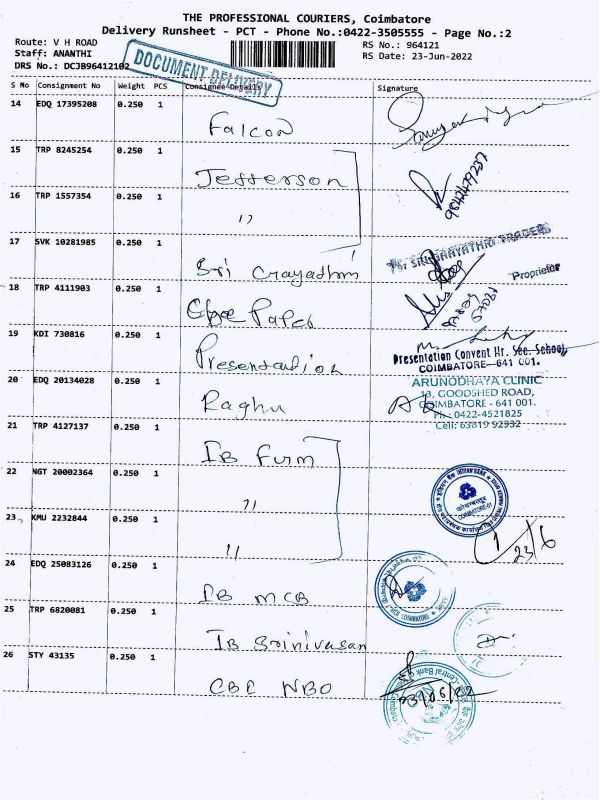 THE PROFESSIONAL COURIERS, Coimbatore
Delivery Runsheet - PCT - Phone No.:0422-3505555 - Page No.:2
Route: V H ROAD
RS No.: 964121
Staff: ANANTHI
RS Date: 23-Jun-2022
DRS No.: DCJB96412102
DOCUMENT DELIVERY
S No Consignment No Weight PCS Consignee Details Signature
14 EDQ 17395208 0.250 1
Falcon
15 TRP 8245254 0.250 1
Jefferson
9842479237
16 TRP 1557354 0.250 1
''
17 SVK 10281985 0.250 1
Sri Gayathri
For SRI GAAYATHRI TRADERS
Proprietor
18 TRP 4111903 0.250 1
Paper
19 KDI 730816 0.250 1
Presentation
Presentation Convent Hr. Sec. School,
COIMBATORE—641 001.
20 EDQ 20134028 0.250 1
Raghu
ARUNODHAYA CLINIC
13, GOODSHED ROAD,
COIMBATORE - 641 001.
Ph : 0422-4521825
Cell: 63819 92932
21 TRP 4127137 0.250 1
IB Furm
22 NGT 20002364 0.250 1
''
INDIAN BANK
23 KMU 2232844 0.250 1
''
23/6
24 EDQ 25083126 0.250 1
IB MCB
COIMBATORE
25 TRP 6820081 0.250 1
IB Srinivasan
26 STY 43135 0.250 1
CBE NBO
Central Bank
23/06/22